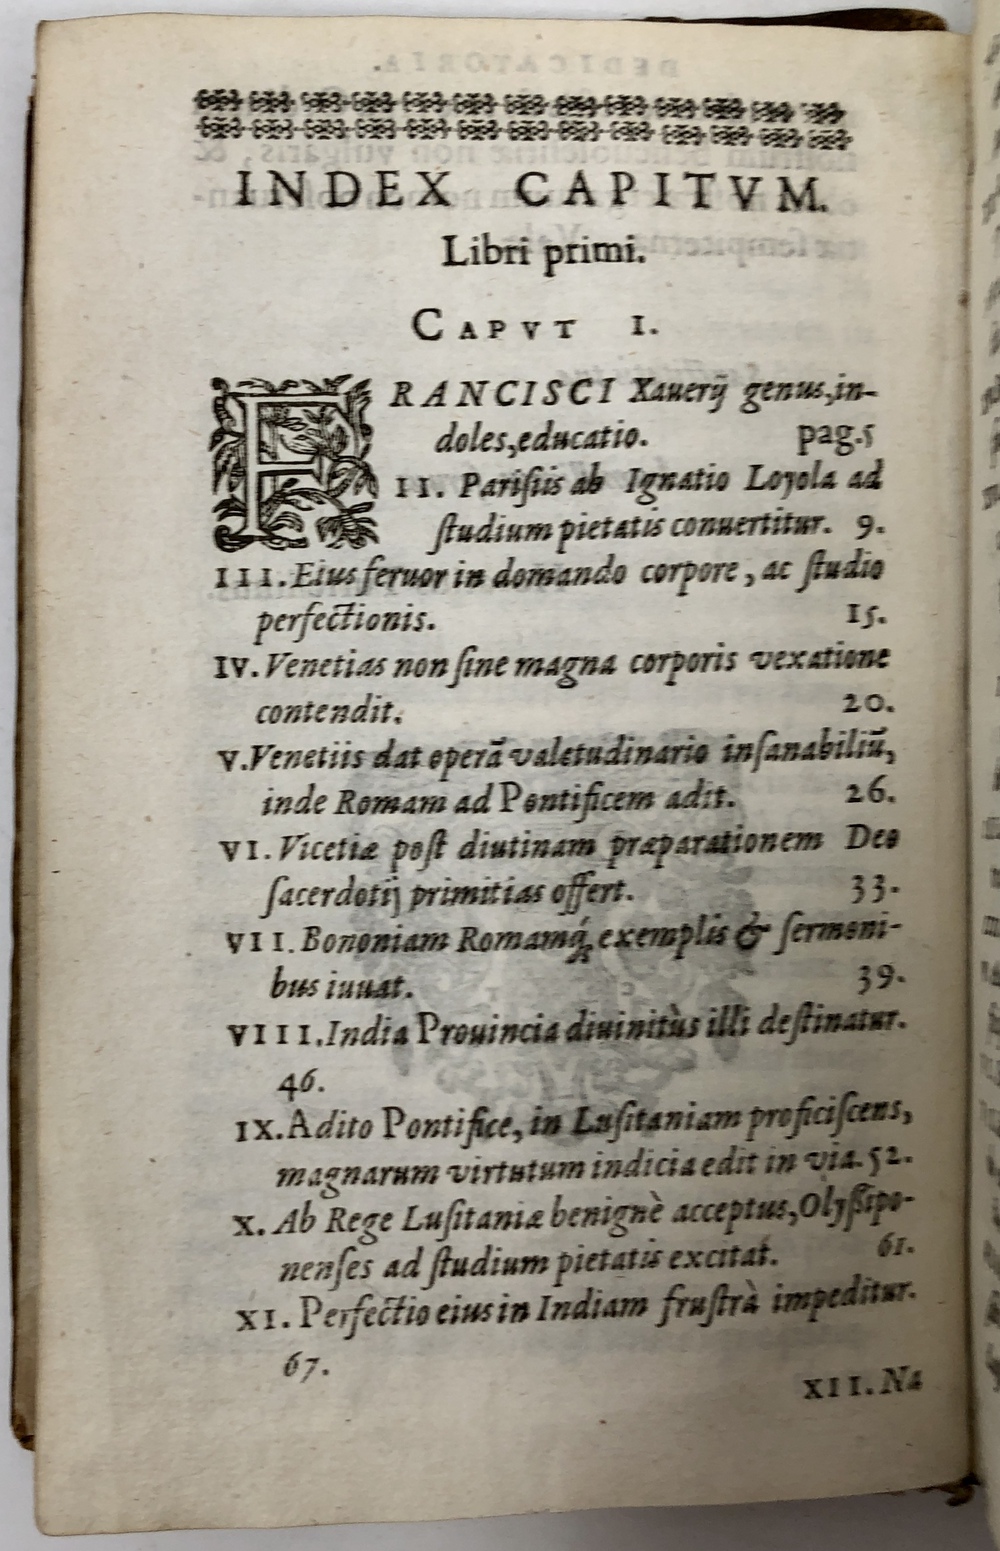 INDEX CAPITVM.
Libri primi.
CAPVT I.
FRANCISCI Xauerij genus, in-
doles, educatio. pag. 5
II. Parisiis ab Ignatio Loyola ad
studium pietatis conuertitur. 9.
III. Eius feruor in domando corpore, ac studio
perfectionis. 15.
IV. Venetias non sine magna corporis vexatione
contendit. 20.
V. Venetiis dat operã valetudinario insanabiliũ,
inde Romam ad Pontificem adit. 26.
VI. Vicetiæ post diutinam præparationem Deo
sacerdotij primitias offert. 33.
VII. Bononiam Romamq́; exemplis & sermoni-
bus iuuat. 39.
VIII. India Prouincia diuinitùs illi destinatur.
46.
IX. Adito Pontifice, in Lusitaniam proficiscens,
magnarum virtutum indicia edit in via. 52.
X. Ab Rege Lusitaniæ benignè acceptus, Olyssipo-
nenses ad studium pietatis excitat. 61.
XI. Perfectio eius in Indiam frustrà impeditur.
67.
XII. Na